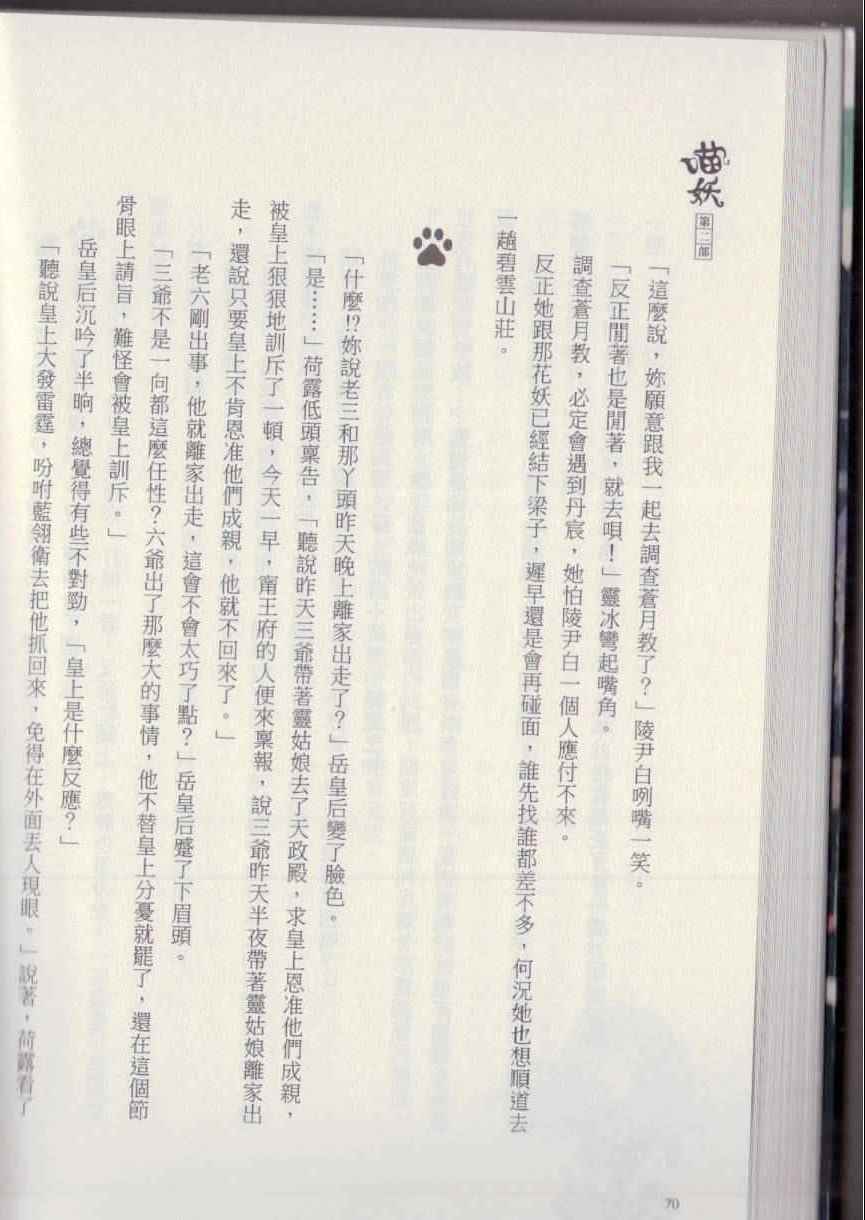 喵妖
第二部
「這麼說，妳願意跟我一起去調查蒼月教了？」陵尹白咧嘴一笑。
「反正閒著也是閒著，就去唄！」靈冰彎起嘴角。
調查蒼月教，必定會遇到丹宸，她怕陵尹白一個人應付不來。
反正她跟那花妖已經結下梁子，遲早還是會再碰面，誰先找誰都差不多，何況她也想順道去
一趟碧雲山莊。
「什麼!?妳說老三和那丫頭昨天晚上離家出走了？」岳皇后變了臉色。
「是……」荷露低頭稟告，「聽說昨天三爺帶著靈姑娘去了天政殿，求皇上恩准他們成親，
被皇上狠狠地訓斥了一頓，今天一早，甯王府的人便來稟報，說三爺昨天半夜帶著靈姑娘離家出
走，還說只要皇上不肯恩准他們成親，他就不回來了。」
「老六剛出事，他就離家出走，這會不會太巧了點？」岳皇后蹙了下眉頭。
「三爺不是一向都這麼任性？六爺出了那麼大的事情，他不替皇上分憂就罷了，還在這個節
骨眼上請旨，難怪會被皇上訓斥。」
岳皇后沉吟了半晌，總覺得有些不對勁，「皇上是什麼反應？」
「聽說皇上大發雷霆，吩咐藍翎衛去把他抓回來，免得在外面丟人現眼。」說著，荷露看了
70